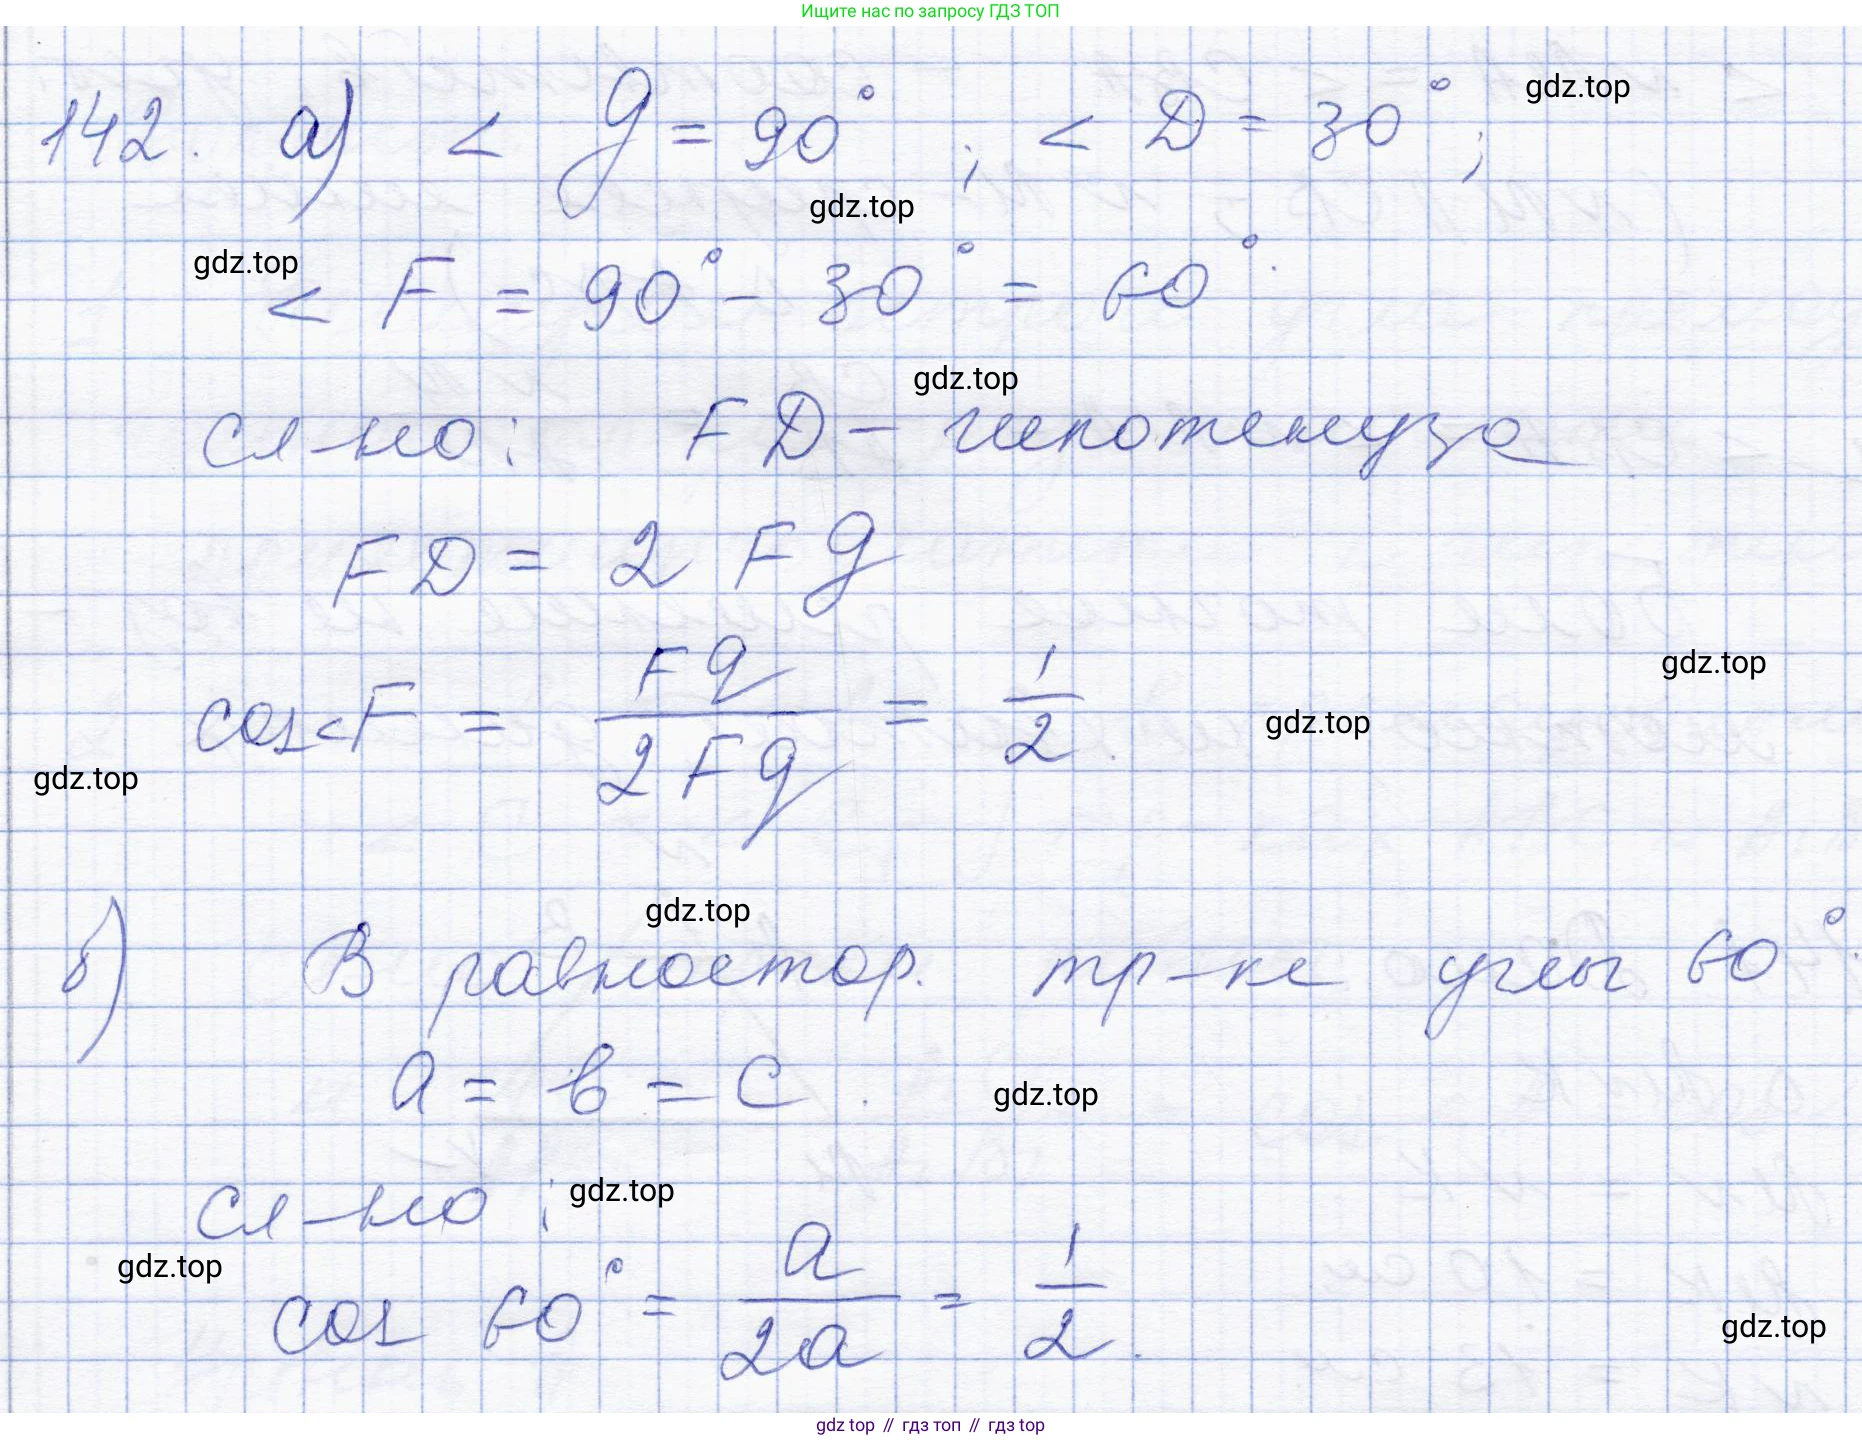 Ищите нас по запросу ГДЗ ТОП
142. а) < g = 90° ; < D = 30° ;
gdz.top
gdz.top
gdz.top
< F = 90° - 30° = 60°.
gdz.top
сл-но: FD - гипотенуза
FD = 2 Fg
cos<F = Fg / 2Fg = 1/2.
gdz.top
gdz.top
gdz.top
gdz.top
б) В равностор. тр-ке углы 60°.
a = b = c.
gdz.top
сл-но:
gdz.top
gdz.top
cos 60° = a / 2a = 1/2.
gdz.top
gdz top // гдз топ // гдз top